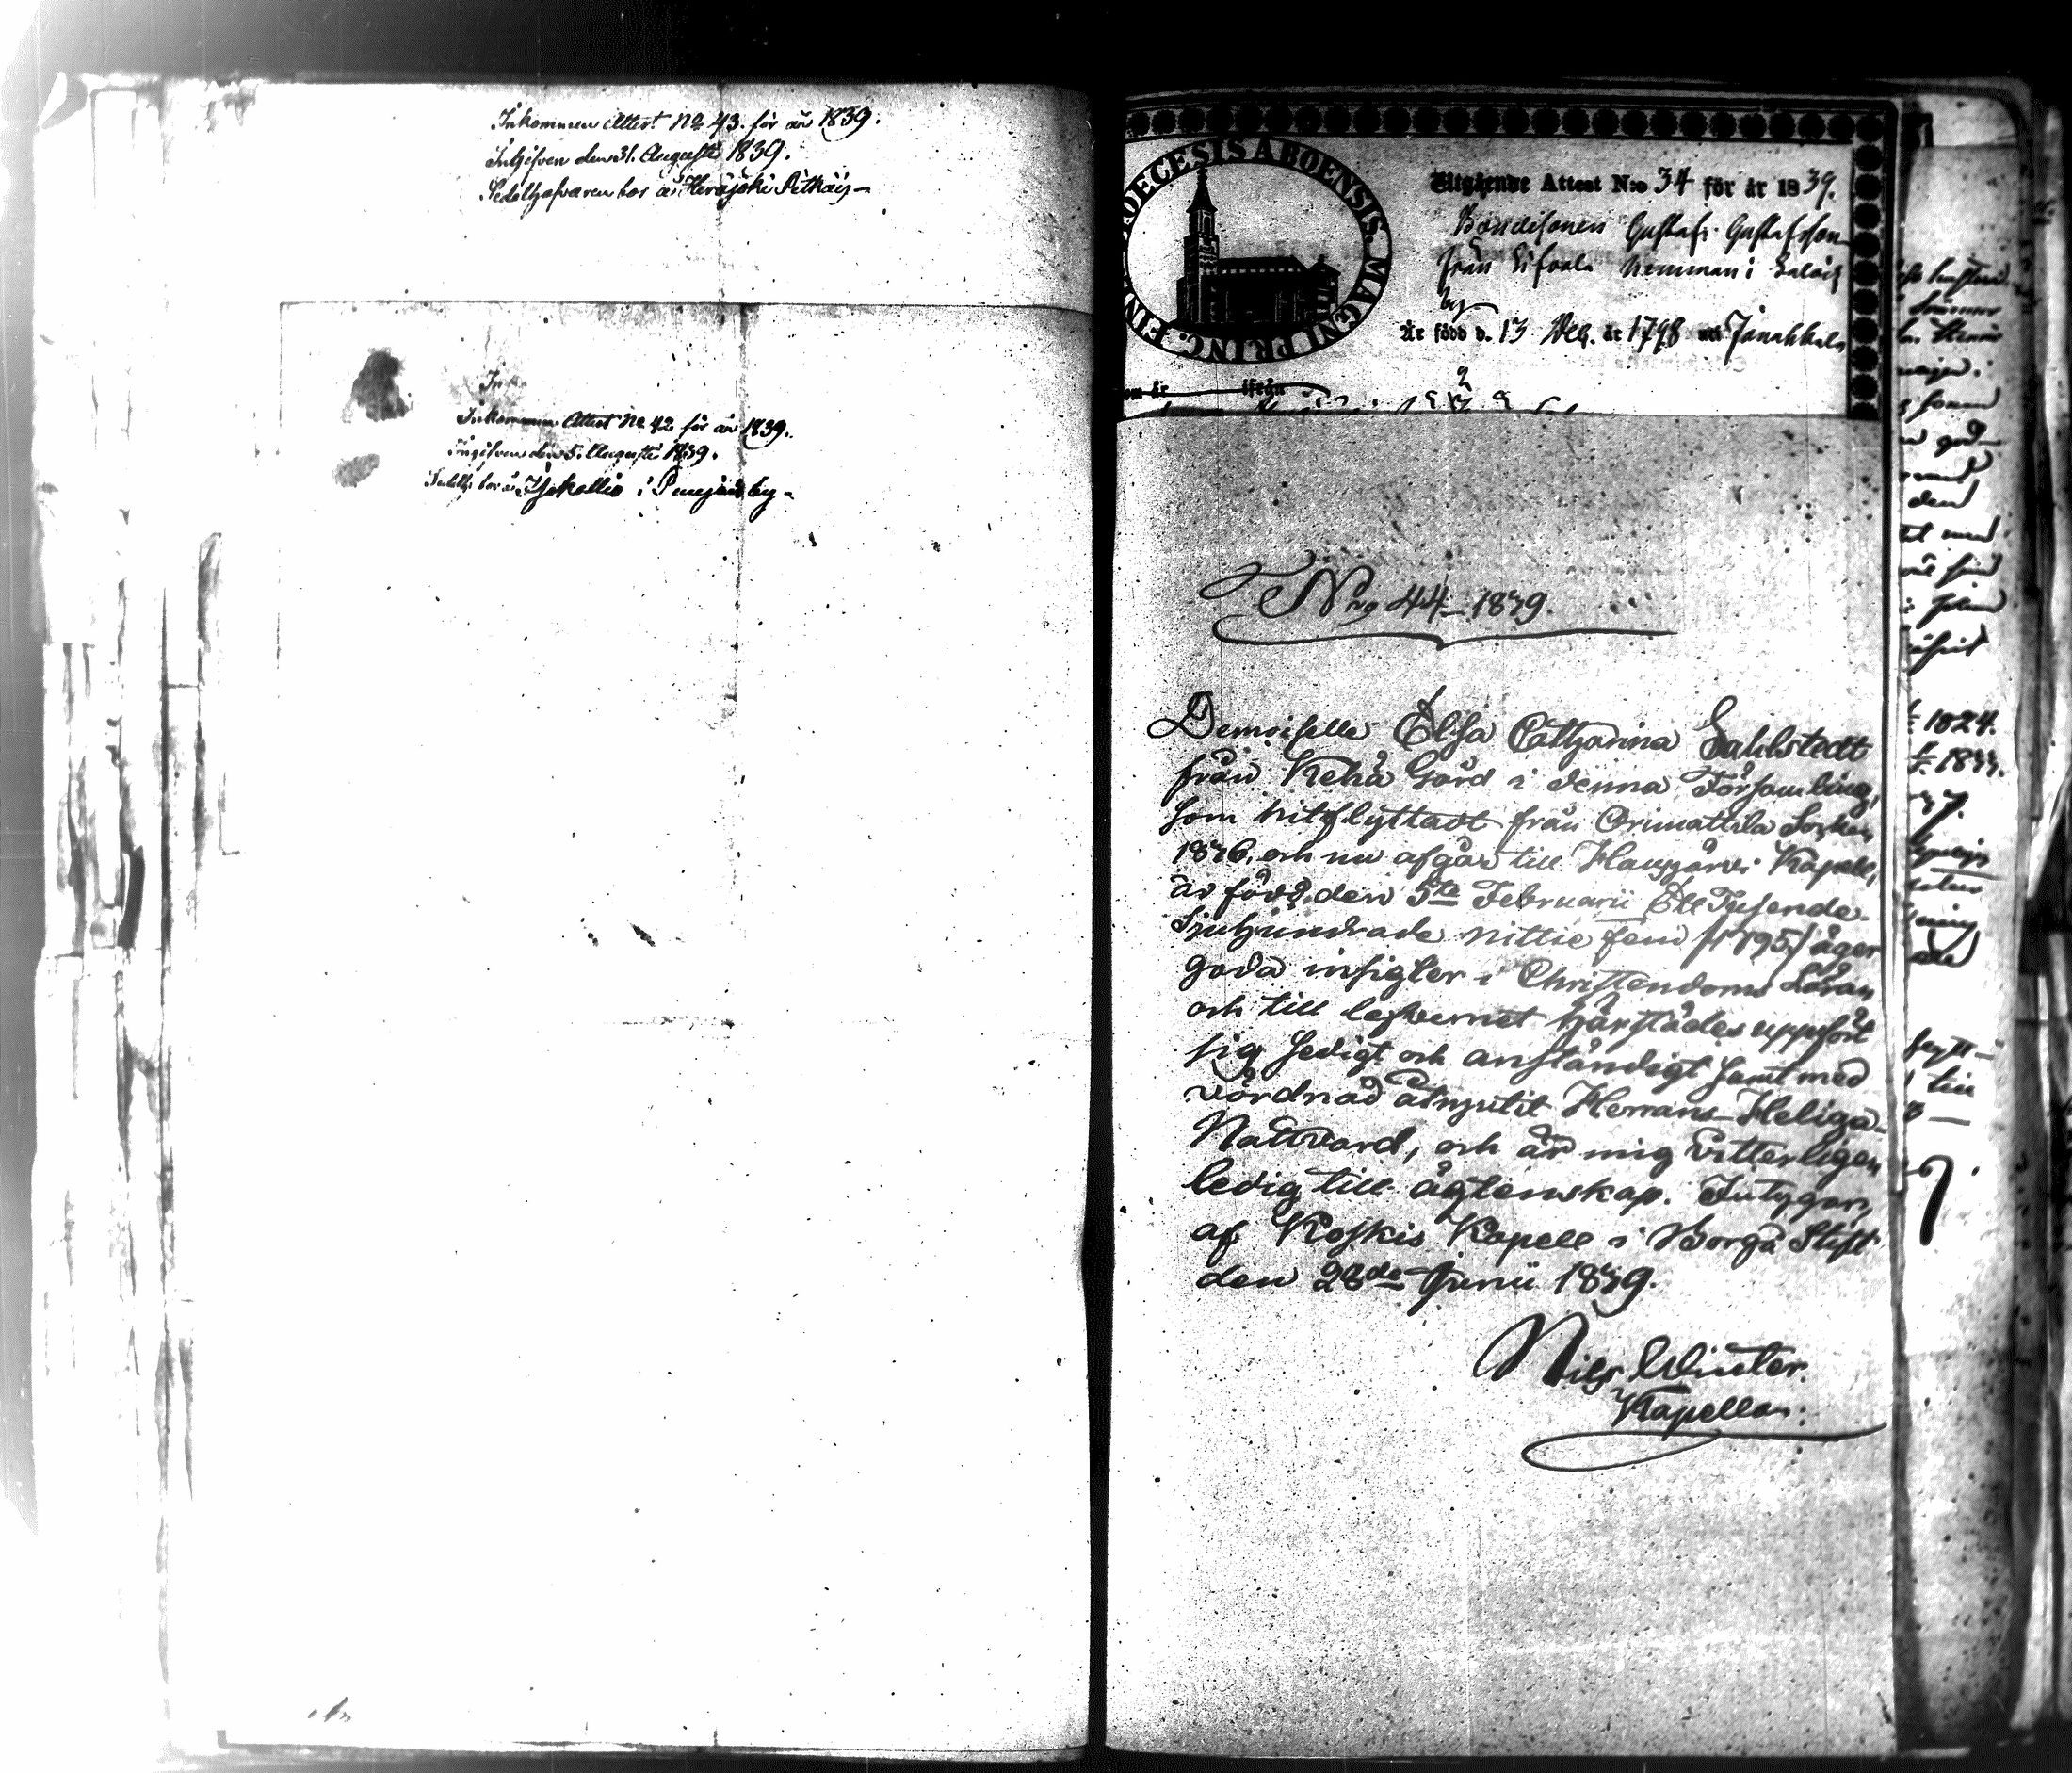 Inkommen Attest No 43. för år 1839.
Ingifven den 31. Augusti 1839.
Sedelhafvaren bor å Herajoki
Inkommen Attest No 42 för år 1839.
Ingifven den 5. Augusti 1839.
bor å i by
DIOECESIS ABOENSIS. MAGNI PRINC. FIN
Utgående Attest N:o 34 för år 1839.
Bondesonen Gustaf Gustafsson
från i
by
Är född d. 13 Dec. år 1798 uti Janakkala
om är ifrån
Nro 44 1839.
Demoiselle Elsa Catharina Sahlstedt
från Keha Gård i denna Församling,
som hitflyttadt från Orimattila Socken
1836, och nu afgår till Hausjärvi Kapell,
är född den 5te Februarii Ett Tusende
Sjuhundrade nittie fem /1795/ äger
goda insigter i Christendoms Läran
och till lefvernet härstädes uppfört
sig sedigt och anständigt samt med
vördnad åtnjutit Herrans Heliga
Nattvard, och är mig vitterligen
ledig till ägtenskap. Intygar,
af Koskis Kapell i Borgå Stift
den 28de Junii 1839.
Nils Winter.
Kapellan.
den
1824.
1833.
till